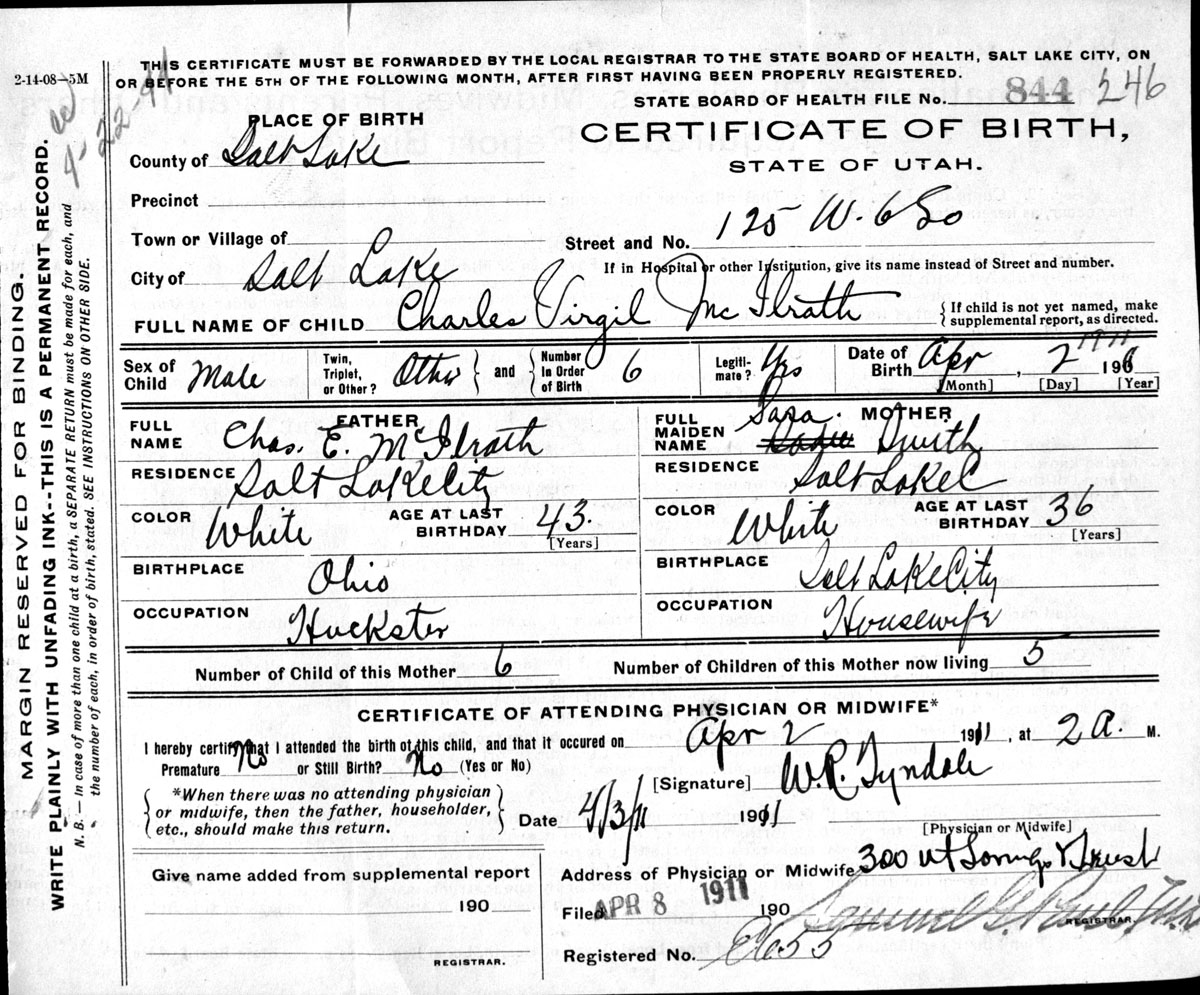 2-14-08—5M
THIS CERTIFICATE MUST BE FORWARDED BY THE LOCAL REGISTRAR TO THE STATE BOARD OF HEALTH, SALT LAKE CITY, ON
OR BEFORE THE 5TH OF THE FOLLOWING MONTH, AFTER FIRST HAVING BEEN PROPERLY REGISTERED.
STATE BOARD OF HEALTH FILE No. 844 246
PLACE OF BIRTH
CERTIFICATE OF BIRTH,
STATE OF UTAH.
County of Salt Lake
Precinct
Town or Village of
Street and No. 125 W. 6 So
City of Salt Lake
If in Hospital or other Institution, give its name instead of Street and number.
FULL NAME OF CHILD Charles Virgil McIlrath
{If child is not yet named, make supplemental report, as directed.
Sex of Child Male
Twin, Triplet, or Other? Other } and { Number In Order of Birth 6
Legitimate? Yes
Date of Birth Apr, 2 1911 190
[Month] [Day] [Year]
FATHER
FULL NAME Chas. E. McIlrath
RESIDENCE Salt Lake City
COLOR White AGE AT LAST BIRTHDAY 43.
[Years]
BIRTHPLACE Ohio
OCCUPATION Huckster
MOTHER
FULL MAIDEN NAME Sara. Smith
RESIDENCE Salt Lake C
COLOR White AGE AT LAST BIRTHDAY 36
[Years]
BIRTHPLACE Salt Lake City
OCCUPATION Housewife
Number of Child of this Mother 6 Number of Children of this Mother now living 5
CERTIFICATE OF ATTENDING PHYSICIAN OR MIDWIFE*
I hereby certify that I attended the birth of this child, and that it occured on Apr 2 1911, at 2 a. M.
Premature No or Still Birth? No (Yes or No)
{ *When there was no attending physician or midwife, then the father, householder, etc., should make this return. }
[Signature] W. R. Tyndale
Date 4/3/11 1911
[Physician or Midwife]
Give name added from supplemental report
190
REGISTRAR.
Address of Physician or Midwife 300 Ut Savings & Trust
Filed APR 8 1911 190
REGISTRAR.
Registered No. 2655
MARGIN RESERVED FOR BINDING.
WRITE PLAINLY WITH UNFADING INK--THIS IS A PERMANENT RECORD.
N. B. — In case of more than one child at a birth, a SEPARATE RETURN must be made for each, and
the number of each, in order of birth stated. SEE INSTRUCTIONS ON OTHER SIDE.